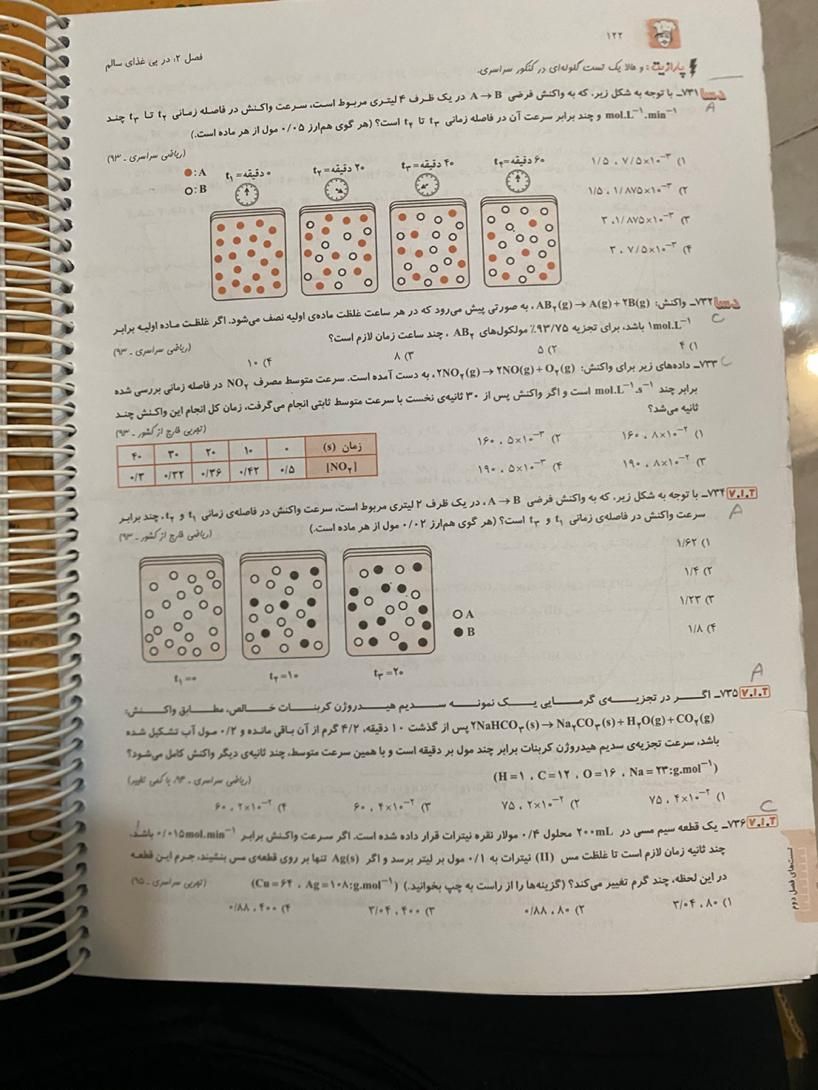 ۱۲۲
فصل ۲: در پی غذای سالم
پارازیت: و حالا یک تست گلوله‌ای در کنکور سراسری.
۷۳۱ـ با توجه به شکل زیر، که به واکنش فرضی A → B در یک ظرف ۴ لیتری مربوط است، سرعت واکنش در فاصله زمانی t₂ تا t₃ چند
mol.L⁻¹.min⁻¹ و چند برابر سرعت آن در فاصله زمانی t₃ تا t₄ است؟ (هر گوی هم‌ارز ۰/۰۵ مول از هر ماده است.)
A
(ریاضی سراسری ـ ۹۳)
:A
:B
t₁= ۰ دقیقه
t₂= ۲۰ دقیقه
t₃= ۴۰ دقیقه
t₄= ۶۰ دقیقه
۱) ۷/۵×۱۰⁻³ ، ۱/۵
۲) ۱/۸۷۵×۱۰⁻³ ، ۱/۵
۳) ۱/۸۷۵×۱۰⁻³ ، ۳
۴) ۷/۵×۱۰⁻³ ، ۳
۷۳۲ـ واکنش: AB₂(g) → A(g) + ۲B(g) ، به صورتی پیش می‌رود که در هر ساعت غلظت ماده‌ی اولیه نصف می‌شود. اگر غلظت ماده اولیه برابر
C
۱mol.L⁻¹ باشد، برای تجزیه ۹۳/۷۵٪ مولکول‌های AB₂ ، چند ساعت زمان لازم است؟
(ریاضی سراسری ـ ۹۳)
۱) ۴ ۲) ۵ ۳) ۸ ۴) ۱۰
C
۷۳۳ـ داده‌های زیر برای واکنش: ۲NO₂(g) → ۲NO(g) + O₂(g)، به دست آمده است. سرعت متوسط مصرف NO₂ در فاصله زمانی بررسی شده
برابر چند mol.L⁻¹.s⁻¹ است و اگر واکنش پس از ۳۰ ثانیه‌ی نخست با سرعت متوسط ثابتی انجام می‌گرفت، زمان کل انجام این واکنش چند
ثانیه می‌شد؟
(تجربی خارج از کشور ـ ۹۳)
۱) ۸×۱۰⁻² ، ۱۶۰ ۲) ۵×۱۰⁻³ ، ۱۶۰
۳) ۸×۱۰⁻² ، ۱۹۰ ۴) ۵×۱۰⁻³ ، ۱۹۰
زمان (s) ۰ ۱۰ ۲۰ ۳۰ ۴۰
[NO₂] ۰/۵ ۰/۴۲ ۰/۳۶ ۰/۳۲ ۰/۳
V.I.T ۷۳۴ـ با توجه به شکل زیر، که به واکنش فرضی A → B ، در یک ظرف ۲ لیتری مربوط است، سرعت واکنش در فاصله‌ی زمانی t₁ و t₂، چند برابر
سرعت واکنش در فاصله‌ی زمانی t₁ و t₃ است؟ (هر گوی هم‌ارز ۰/۰۲ مول از هر ماده است.)
A
(ریاضی خارج از کشور ـ ۹۳)
۱) ۱/۶۲
۲) ۱/۴
۳) ۱/۲۳
۴) ۱/۸
A
B
t₁=۰
t₂=۱۰
t₃=۲۰
A
V.I.T ۷۳۵ـ اگر در تجزیه‌ی گرمایی یک نمونه سدیم هیدروژن کربنات خالص، مطابق واکنش:
۲NaHCO₃(s) → Na₂CO₃(s) + H₂O(g) + CO₂(g) پس از گذشت ۱۰ دقیقه، ۴/۲ گرم از آن باقی مانده و ۰/۲ مول آب تشکیل شده
باشد، سرعت تجزیه‌ی سدیم هیدروژن کربنات برابر چند مول بر دقیقه است و با همین سرعت متوسط، چند ثانیه‌ی دیگر واکنش کامل می‌شود؟
(H = ۱ ، C = ۱۲ ، O = ۱۶ ، Na = ۲۳ : g.mol⁻¹)
(ریاضی سراسری ـ ۹۳، با کمی تغییر)
۱) ۴×۱۰⁻² ، ۷۵ ۲) ۲×۱۰⁻² ، ۷۵ ۳) ۴×۱۰⁻² ، ۶۰ ۴) ۲×۱۰⁻² ، ۶۰
C
V.I.T ۷۳۶ـ یک قطعه سیم مسی در ۲۰۰mL محلول ۰/۴ مولار نقره نیترات قرار داده شده است. اگر سرعت واکنش برابر ۰/۰۱۵mol.min⁻¹ باشد،
چند ثانیه زمان لازم است تا غلظت مس (II) نیترات به ۰/۱ مول بر لیتر برسد و اگر Ag(s) تنها بر روی قطعه‌ی مس بنشیند، جرم این قطعه
در این لحظه، چند گرم تغییر می‌کند؟ (گزینه‌ها را از راست به چپ بخوانید.) (Cu = ۶۴ ، Ag = ۱۰۸ : g.mol⁻¹)
(تجربی سراسری ـ ۹۵)
۱) ۸۰ ، ۳/۰۴ ۲) ۸۰ ، ۰/۸۸ ۳) ۴۰۰ ، ۳/۰۴ ۴) ۴۰۰ ، ۰/۸۸
تست‌های فصل دوم